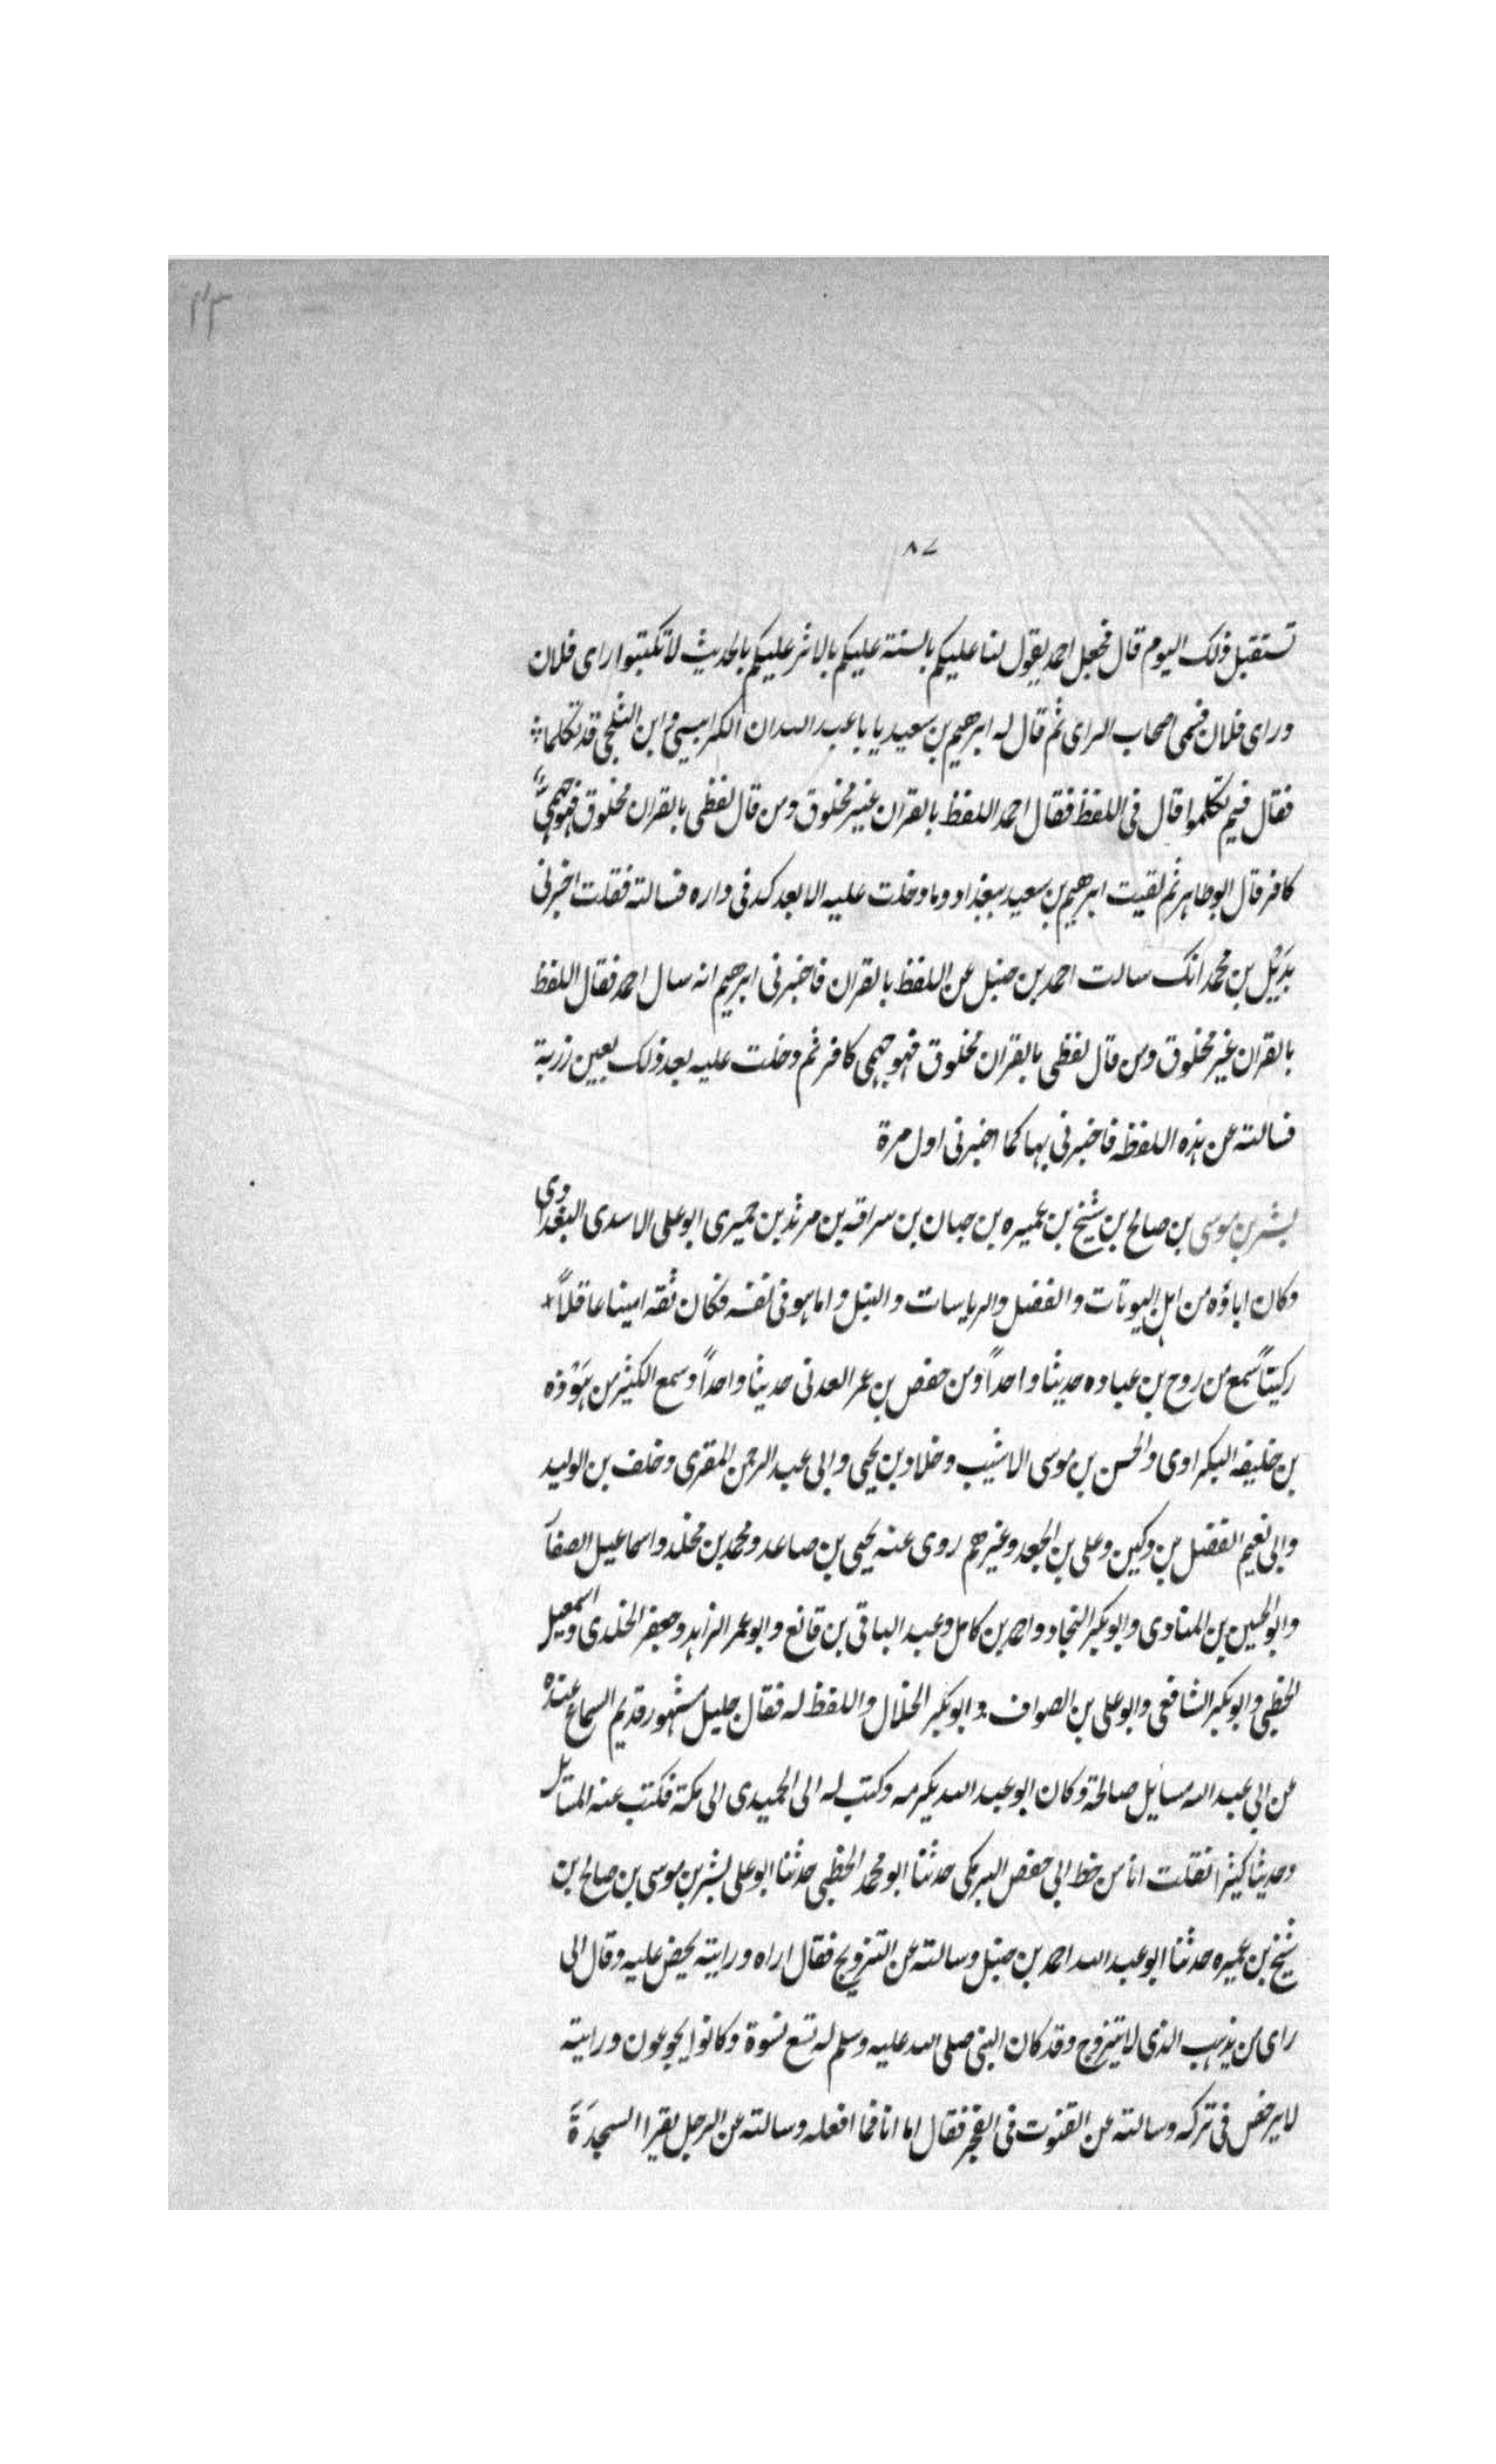 ٤٣
٨٧
تستقبل ذلک الیوم قال فجعل احمد یقول لنا علیکم بالسنة علیکم بالاثر علیکم بالحدیث لا تکتبوا رای فلان
ورای فلان فسمی اصحاب الرای ثم قال له ابرهیم بن سعید یا با عبد الله ان الکرابیسی وابن الثلجی قد تکلما
فقال فیم تکلموا قال فی اللفظ فقال احمد اللفظ بالقران غیر مخلوق ومن قال لفظی بالقران مخلوق فهو جهمیٌّ
کافر قال ابو طاهر ثم لقیت ابرهیم بن سعید ببغداد وما دخلت علیه الا بعد کد فی داره فسالته فقلت اخبرنی
بدیل بن محمد انک سالت احمد بن حنبل عن اللفظ بالقران فاخبرنی ابرهیم انه سال احمد فقال اللفظ
بالقران غیر مخلوق ومن قال لفظی بالقران مخلوق فهو جهمی کافر ثم دخلت علیه بعد ذلک بعین زربة
فسالته عن هذه اللفظه فاخبرنی بها کما اخبرنی اول مرة
بشر بن موسی بن صالح بن شیخ بن عمیره بن حبان بن سراقه بن مرثد بن حمیری ابو علی الاسدی البغدادی
وکان اباؤه من اهل البیوتات والفضل والریاسات والنبل واما هو فی نفسه فکان ثقه امینا عاقلاً
رکیناً سمع من روح بن عباده حدیثا واحداً ومن حفص بن عمر العدنی حدیثا واحداً وسمع الکثیر من هَوْذه
بن خلیفه البکراوی والحسن بن موسی الاشیب وخلاد بن یحیی وابی عبد الرحمن المقری وخلف بن الولید
وابی نعیم الفضل بن دکین وعلی بن الجعد وغیرهم روی عنه یحیی بن صاعد ومحمد بن مخلد واسماعیل الصفار
وابو الحسین بن المنادی وابو بکر النجاد واحمد بن کامل وعبد الباقی بن قانع وابو عمر الزاهد وجعفر الخلدی واسمعیل
الخطبی وابو بکر الشافعی وابو علی بن الصواف وابو بکر الخلال واللفظ له فقال جلیل مشهور قدیم السماع عنده
عن ابی عبد الله مسایل صالحة وکان ابو عبد الله یکرمه وکتب له الی الحمیدی الی مکة فکتب عنه المسایل
وحدیثا کثیرا نقلت انا من خط ابی حفص البرمکی حدثنا ابو محمد الخطبی حدثنا ابو علی بشر بن موسی بن صالح بن
شیخ بن عمیره حدثنا ابو عبد الله احمد بن حنبل وسالته عن التزویج فقال اراه ورایته یحض علیه وقال الی
رای من یذهب الذی لا یتزوج وقد کان النبی صلی الله علیه وسلم له تسع نسوة وکانوا یجوعون ورایته
لا یرخص فی ترکه وسالته عن القنوت فی الفجر فقال اما انا فما افعله وسالته عن الرجل یقرا السجدَةَ